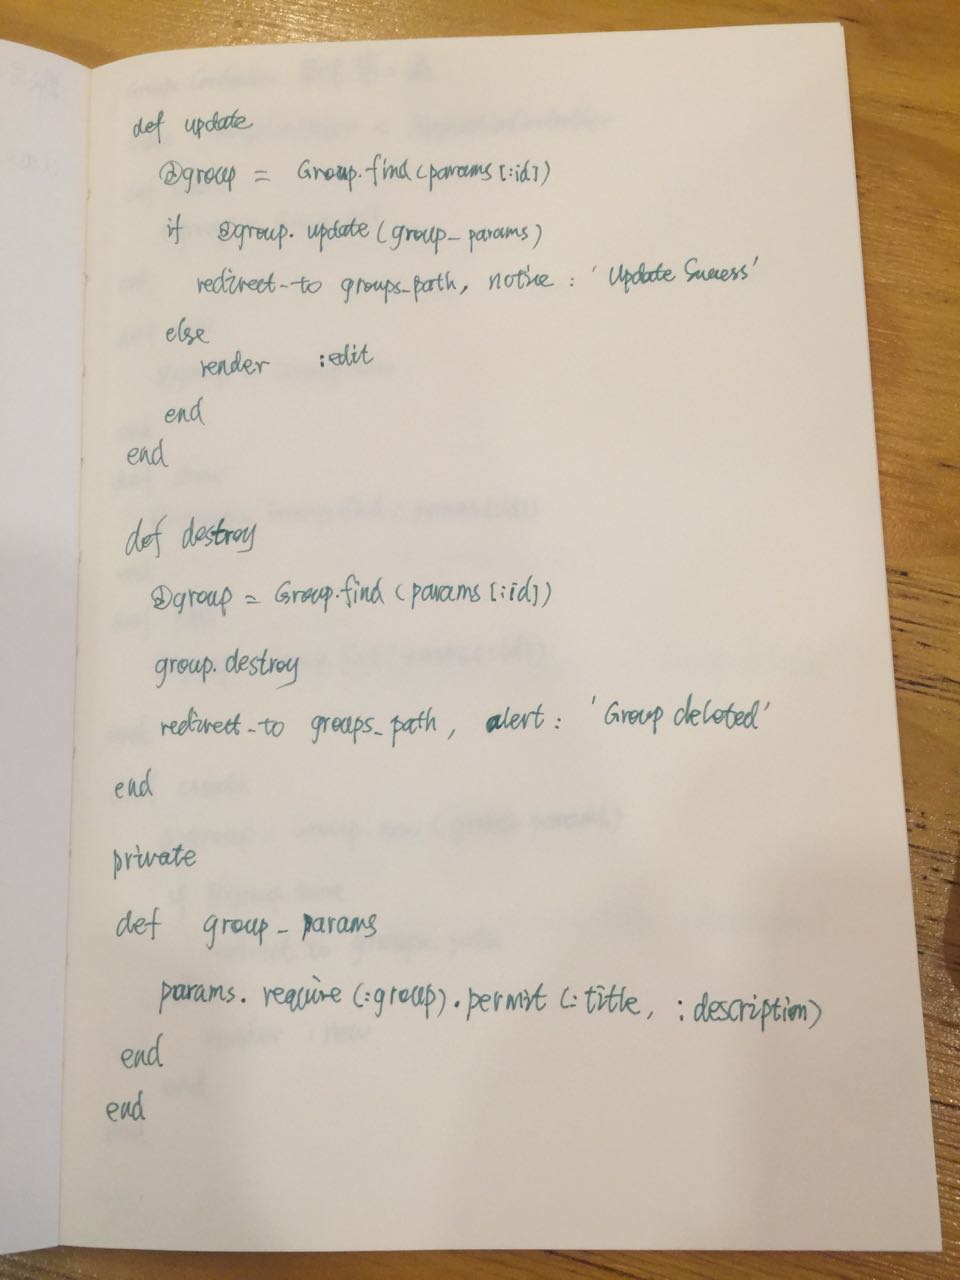 def update
@group = Group.find(params[:id])
if @group.update(group_params)
redirect_to groups_path, notice: 'Update Success'
else
render :edit
end
end
def destroy
@group = Group.find(params[:id])
group.destroy
redirect_to groups_path, alert: 'Group deleted'
end
private
def group_params
params.require(:group).permit(:title, :description)
end
end